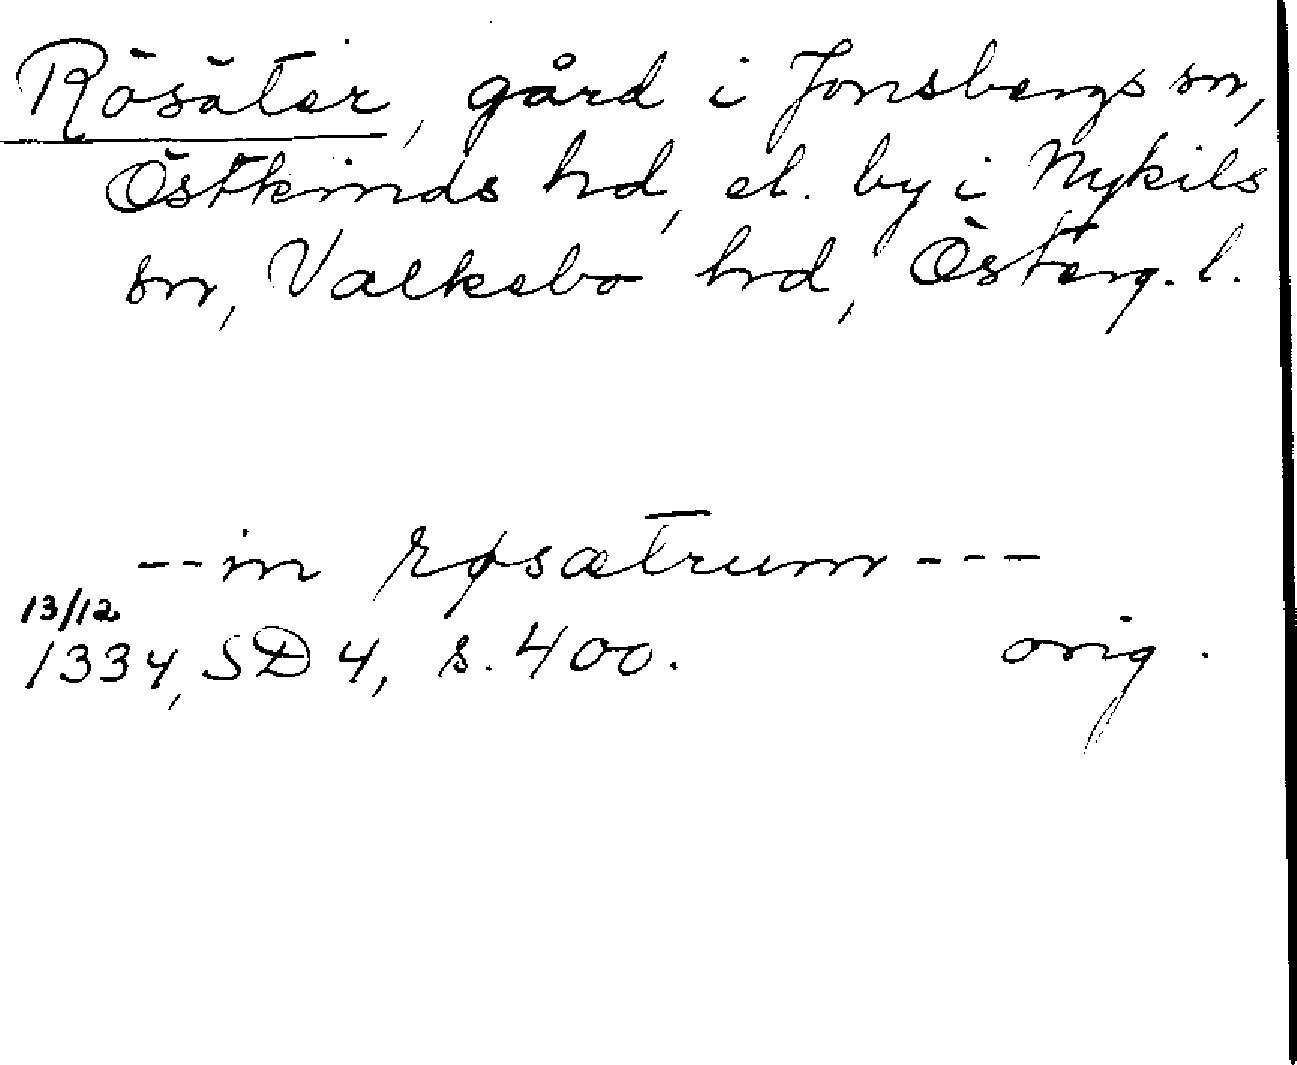 Rösäter, gård i Jonsbergs sn,
Östkinds hd, el. by i Nykils
sn, Valkebo hrd, Österg. l.
--in røsætrum---
13/12
1334, SD 4, s. 400. orig.